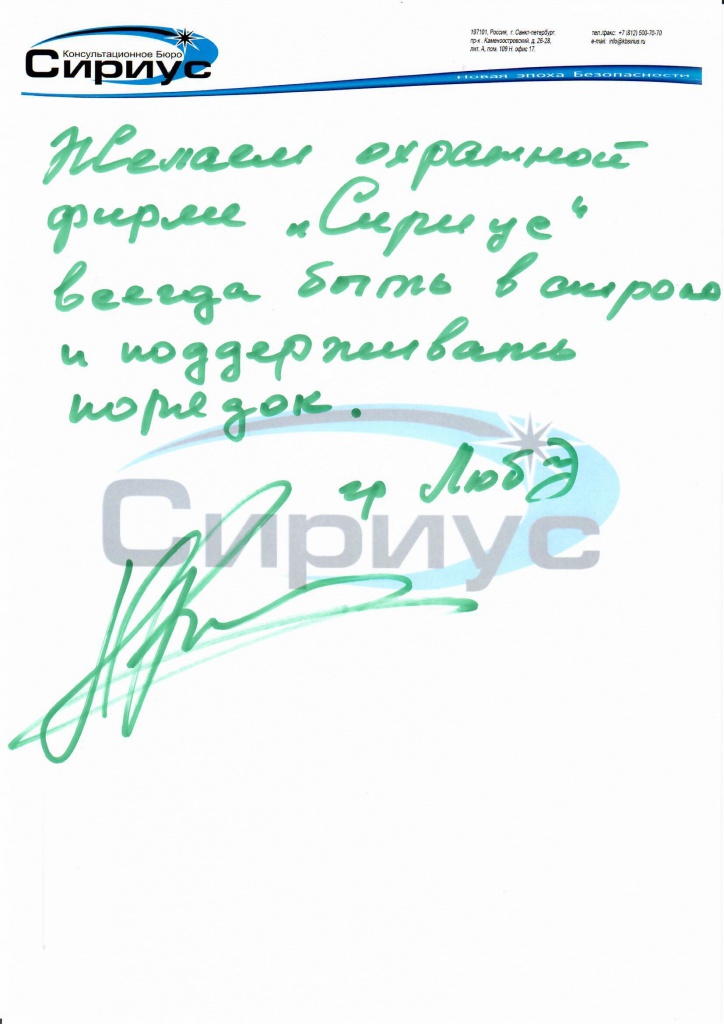 Консультационное Бюро
Сириус
197101, Россия, г. Санкт-петербург.
пр-к . Каменоостровский, д. 26-28,
лит. А, пом. 109 Н. офис 17.
тел./факс: +7 (812) 500-70-70
e-mail: info@kbsirius.ru
Новая эпоха Безопасности
Желаем охранной
фирме „Сириус“
всегда быть в
и поддерживать
порядок.
гр Любэ
Сириус